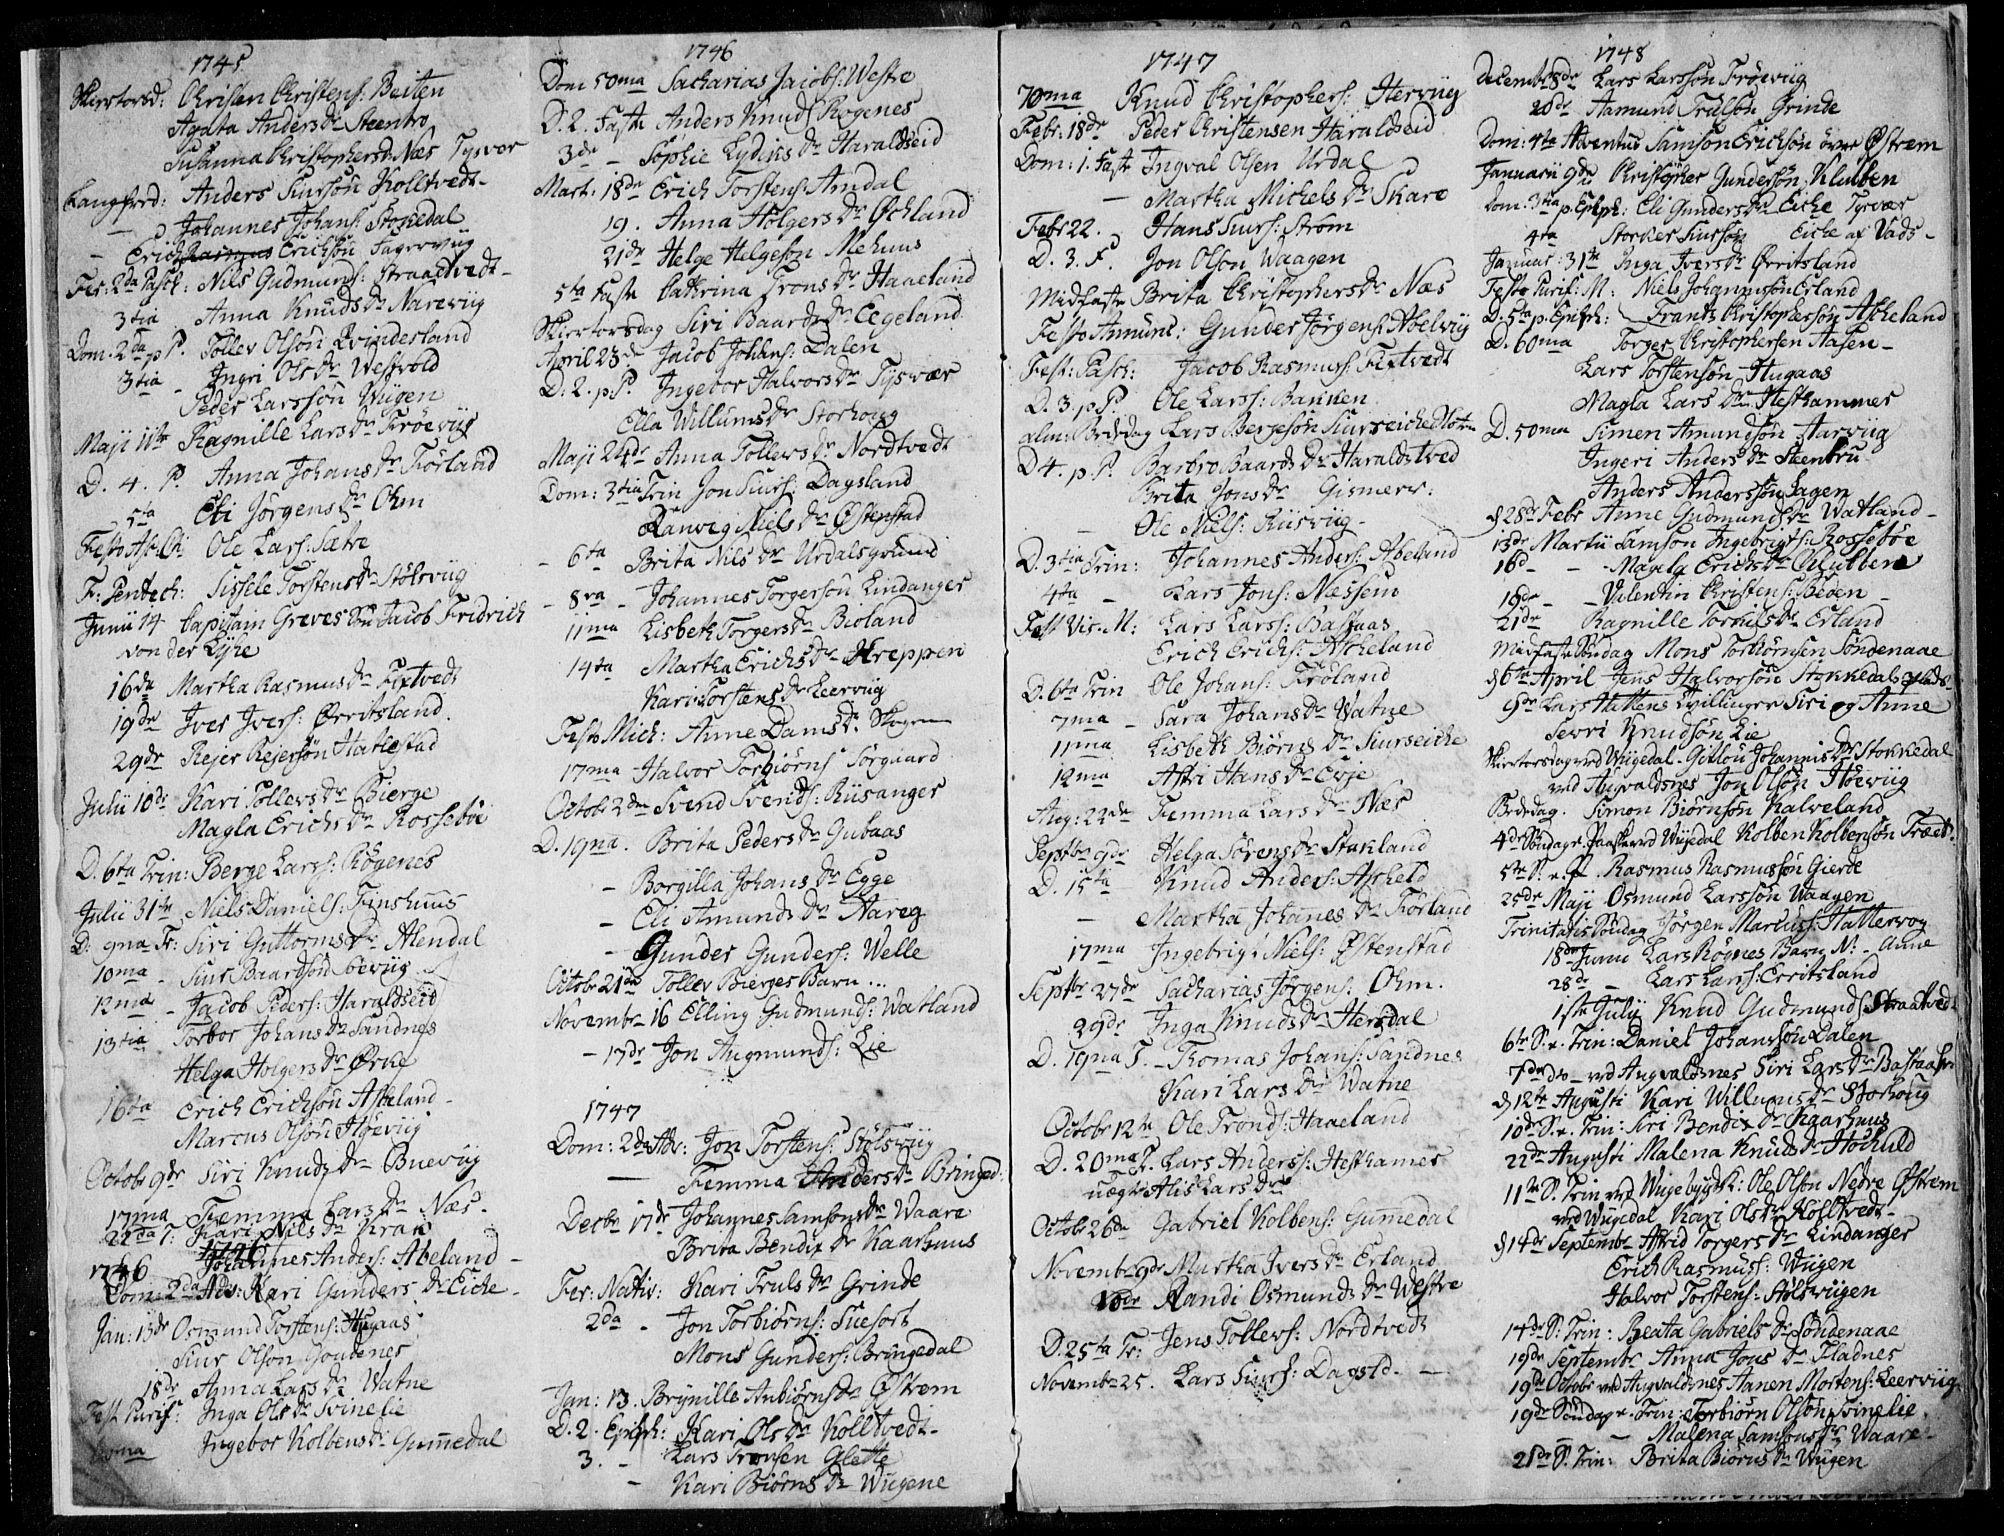 1745
Skiertorsd: Christen Christens: Beiten
Agata Anders Dr Steenbro
Susanna Christophersdr Næs Tysvær
Langfred: Anders Siursøn Kolltvedt-
— D Johannes Johans: Stokedal
- Erich Erichsøn Fagerviig
Fer: 2da Pasch: Nils Gudmuns: Straadtvedt-
3tia Anna Knuds Dr Nareviig
Dom. 2da p P. Tollev Olsøn Qvindesland
3tia - Ingri Ols Dr Westvold
Peder Larssøn Wiigen
Maji 11te Ragnille Lars Dr Frøeviig
D. 4. P Anna Johans Dr Førland
5ta Eli Jørgens Dr Ohm
Festo As: Ole Lars: Sætre
F: Pentech: Sissele Torstens Dr Stølsviig
Junii 14 Capitain Greves Søn Jacob Fridrich
von der Lyhe
16de Martha Rasmus Dr Fixtvedt
19de Iver Ivers: Ørritsland.
29de Rejer Rejersøn Hatlestad
Julii 10de Kari Tollevs Dr Bierge
Magla Erichs Dr Rossebøe
D. 6ta Trin: Berge Larss: Røgenes
Julii 31te Niels Daniels: Finshuus
D. 9na Tr: Siri Guttorms Dr Alendal
10ma - Siur Baardsøn Soeviig
12ma - Jacob Peders: Haraldseid
13tia Torbor Johans Dr Sandnes
Helga Holgers Dr Ørke
16ta Erich Erichsøn Askeland-
Marcus Olsøn Høeviig
Octobr 9de Siri Knuds Dr Bueviig
17ma Femma Lars Dr Næs-
22da T: Kari Nils Dr Krak
1746
1746 Johannes Anders: Abeland-
Dom: 2da Adv: Kari Gunders Dr Eiche-
Jan: 13de Osmund Torstens: Hugaas
Siur Olson Goudenes
18de Anna Lars Dr Watne
Fest Purif: Inga Ols Dr Svinelie
Ingebor Kolbens Dr Gummedal
1746
Dom 50ma Sacharias Jacobs: Westre
D. 2. Faste Anders Knuds Røgenes
3de - Sophie Lydiks Dr Haraldseid
Mart: 18de Erich Torstens: Amdal
19. Anna Holgers Dr Øchland
21de Helge Helgesøn Mehuus
5te Faste Cathrina Trons Dr Haaeland
Skiertorsdag Siri Baards Dr Eegeland
April 23de Jacob Johans: Dalen
D. 2. p. P. Ingebor Halvors Dr Tysvær
Ella Willums Dr Storhoug
Maji 24de Anna Tollevs Dr Nordtvedt
Dom: 3tia Trin Jon Siurs: Dagsland
Ranveg Niels Dr Østenstad
- 6ta - Brita Nils Dr Urdalsgrund
- 8va - Johannes Torgersøn Lindanger
11ma Lisbeth Torgers Dr Bioland
14ta Martha Erichs Dr Kreppen
Kari Torstens Dr Leerviig
Festo Mich: Anne Dams Dr Skogen
17ma Halvor Torbiørns Sørgaard
Octobr 2den Svend Svends: Riisanger
D. 19na. Brita Peders Dr Gubaas
- Borgilla Johans Dr Egge
- Eli Amunds Dr Aareg
- Gunder Gunders: Welle
Octobr 21de Tollev Bierges Barn...
Novembr 16 Elling Gudmunds: Watland
- 17de Jon Augmunds: Lie
1747
Dom: 2da Adv: Jon Torstens: Stølsviig
— Femma Anders Dr Bringed:
Decbr 17de Johannes Samsons Dr Waare
Brita Bendix Dr Kaarhuus
Fer: Nativ: Kari Truls Dr Grinde
2da - Jon Torbiørns: Suesort
Mons Gunders: Bringedal
Jan: 13. Brynille Anbiørns Dr Østrem
D. 2. Epiph: Kari Ols Dr Kolltvedt-
3. - Lars Tronsen Glette
- Kari Biørns Dr Wiigene
1747
70ma Knud Christophers: Herviig
Febr: 18de Peder Christensen Haraldseid
Dom: 1. Faste Ingval Olsen Urdal
- Martha Michels Dr Skare
Febr 22. Hans Siurs: Strøm
D. 3. F. Jon Olson Waagen
Midfaste Brita Christophers Dr Næs
Festo Annunt: Gunder Jørgens: Noelviig
Fest: Pasch: Jacob Rasmuss: Fixtvedt
D. 3. p P. Ole Larss: Bakken
alm: Bededag Lars Bergesøn Siurseiche
D 4. p. P. Barbro Baards Dr Haraldstved
Brita Jons Dr Gismerv:
- Ole Niels: Riisviig-
D. 3tia Trin: Johannes Anders: Abeland
4ta - Lars Jons: Næssem
Fest Vis: M: Lars Larss: Bassaas
Erich Erichs: Ascheland
D. 6ta Trin Ole Johans: Frøland
7ma - Sara Johans Dr Watne
11ma Lisbeth Biørns Dr Siurseiche
12ma Astri Hans Dr Evje
Aug: 22de Femma Lars Dr Næs
Septbr 9de Helga Sørens Dr Stakland
D. 15ta Knud Anders: Ascheld
- Martha Johanes Dr Førland
17ma Ingebrigt Niels: Østenstad
Septbr 27de Sacharias Jørgens: Ohm.
29de Inga Knuds Dr Hersdal
D. 19na T. - Thomas Johans: Sandnes
Kari Lars Dr Watne
Octobr 12te Ole Tronds: Haaeland
D. 20ma T. Lars Anderss: Hestkamer
uægte Alis Lars Dr
Octobr 26de Gabriel Kolbens: Gummedal
Novembr 9de Martha Ivers Dr Erland
10de Randi Osmunds Dr Westre
D. 25ta Tr: Jens Tollevs: Nordtvedt
Novembr 25. Lars Siurs: Dagsld. —
1748
Decembr 8de Lars Larssøn Frøeviig
20de Aamund Trulsøn Grinde
Dom: 4ta Adventus Samson Erichsøn øvre Østrem
Januarii 9de Christopher Gundersøn Klubben
Dom: 3tia p Epiph: Eli Gunders Dr Eiche Tysvær
4ta Storker Siursøn Eiche af Vads-
Januar: 31te Inga Ivers Dr Ørritsland
Festo Purif: M: Niels Johannsøn Erland
D: 5ta p. Epiph: Frantz Christophersøn Ascheland
D. 60ma Torger Christophersen Aasen-
Lars Torstensøn Hugaas
Magla Lars Dr Hestkammer
D. 50ma Simen Amundsøn Aarviig
Ingeri Anders Dr Steenbru
Anders Anderssøn Hagen
d 28de Febr Anne Gudmunds Dr Watland-
13de Martii Samson Ingebrigts: Rossebøe
16d - - Magla Erichs Dr Klubben
19de - - Valentin Christens: Beden-
21de Ragnille Torkils Dr Erland
Midfaste Søndag Mons Torbiørnsen Søndenaae
d 6te April Jens Halvorsøn Stokkedals plads-
9de Lars Hattens Tvillinger Siri og Anne
Sevri Knudsøn Lie
Skiertorsdag ved Wiigedal - Gitlou Johannis Dr Stokkedal
ved Augvaldsnes Jon Olsøn Høeviig
Bededag. Simon Biørnsøn Kalveland
4de Søndag e. Paaske ved Wiigedal Kolben Kolbensøn Træet.
5te S: e. P. Rasmus Rasmussøn Gierde
25de Maji Osmund Larssøn Waagen
Trinitatis Søndag Jørgen Marcuss: Hattervog
18de Junii Lars Røgnes Barn N: - Anne
28de - Lars Larss: Erritsland
1ste Julii Knud Gudmunds: Straatved
6te S. e. Trin: Daniel Johanssøn Dalen
7de do - ved Augvaldsnes Siri Lars Dr Bastaasen
d 12te Augusti Kari Willums Dr Storhoug
10de S. e. Trin: Siri Bendix Dr Kaarhuus
22de Augusti Malena Knuds Dr Høchuld
11te S: Trin ved Wiigebygd K: Ole Olsøn Nedre Østrem
ved Wiigedal Kari Ols Dr Kolltvedt-
d 14de Septembr Astrid Torgers Dr Lindanger
Erich Rasmuss: Wiigen
Halvor Torstens: Stølsviigen
14de S: Trin: Beata Gabriels Dr Søndenaae
19de Septembr Anna Jons Dr Fladnes
19de Octobr ved Augvaldsnes Aanen Mortens: Leerviig
19de Søndag e. Trin: Torbiørn Olsøn Svinelie.
- - Malena Samsons Dr Waare-
21de S: Trin: Brita Biørns Dr Wiigen